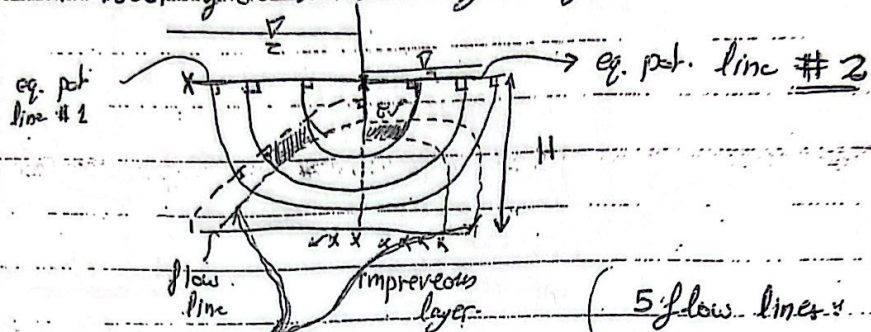 eq. pot
line #1
X
eq. pot. line #2
H
flow
line
impreveous
layer
( 5 flow lines: